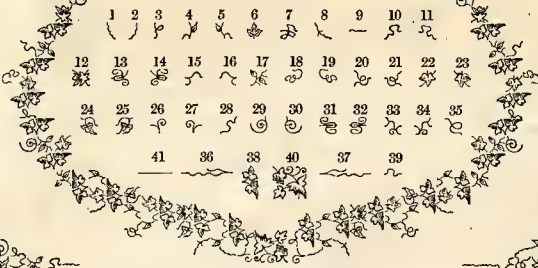 1 2 3 4 5 6 7 8 9 10 11
12 13 14 15 16 17 18 19 20 21 22 23
24 25 26 27 28 29 30 31 32 33 34 35
41 36 38 40 37 39